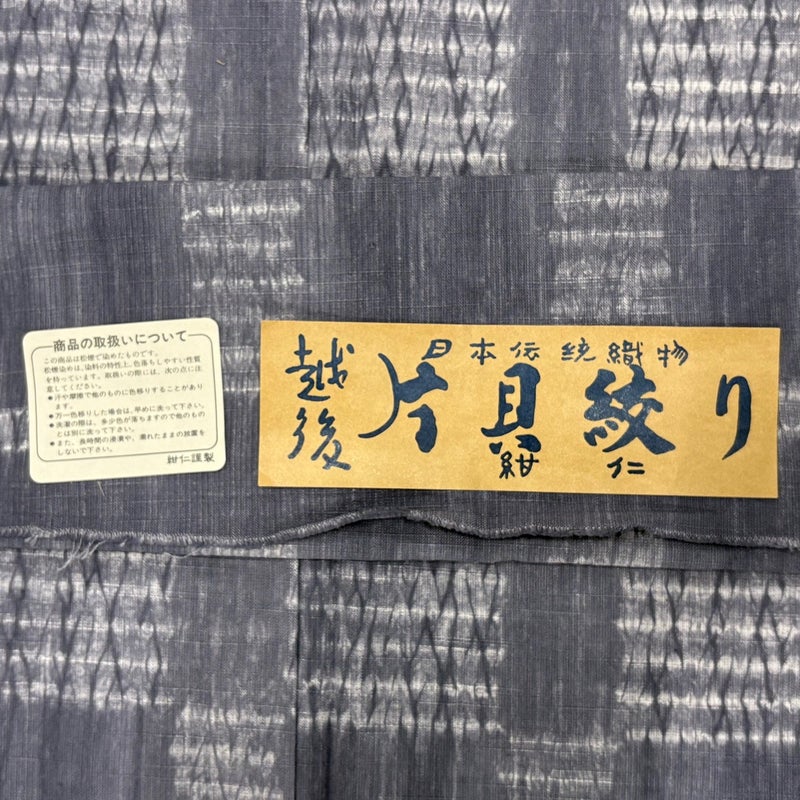 商品の取扱いについて
この商品は松煙で染めたものです。
松煙染めは、染料の特性上、色落ちしやすい性質
を持っています。取扱いの際には、次の点に注
意してください。
●汗や摩擦で他のものに色移りすることがあり
ます。
●万一色移りした場合は、早めに洗って下さい。
●洗濯の際は、多少色が落ちますので他のもの
とは別に洗って下さい。
●また、長時間の浸漬や、濡れたままの放置を
しないで下さい。
紺仁謹製
日本伝統織物
越後
片貝絞り
紺仁